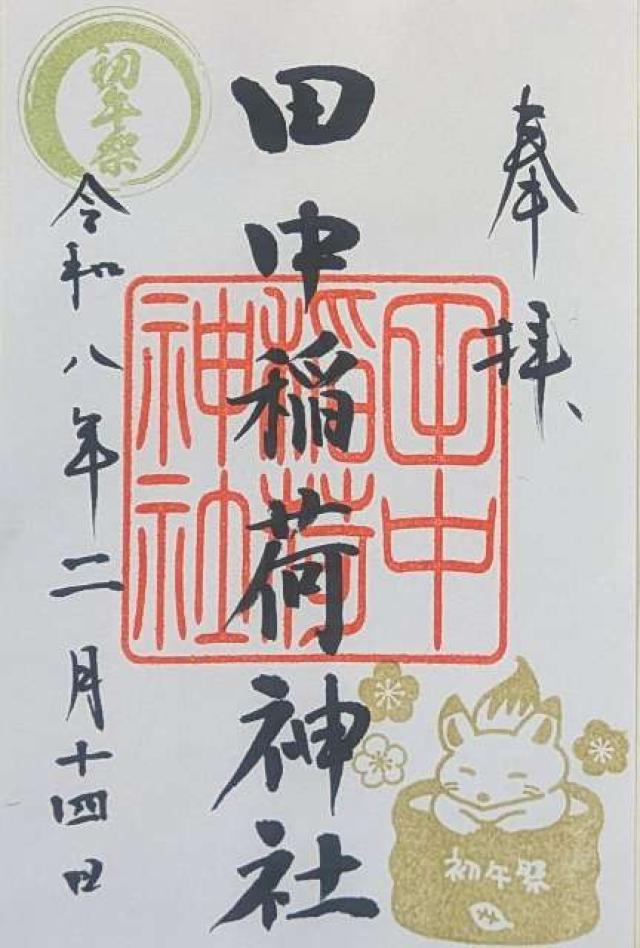 奉拝、
田中稲荷神社
田中
稲荷
神社
初午祭
令和八年二月十四日
初午祭